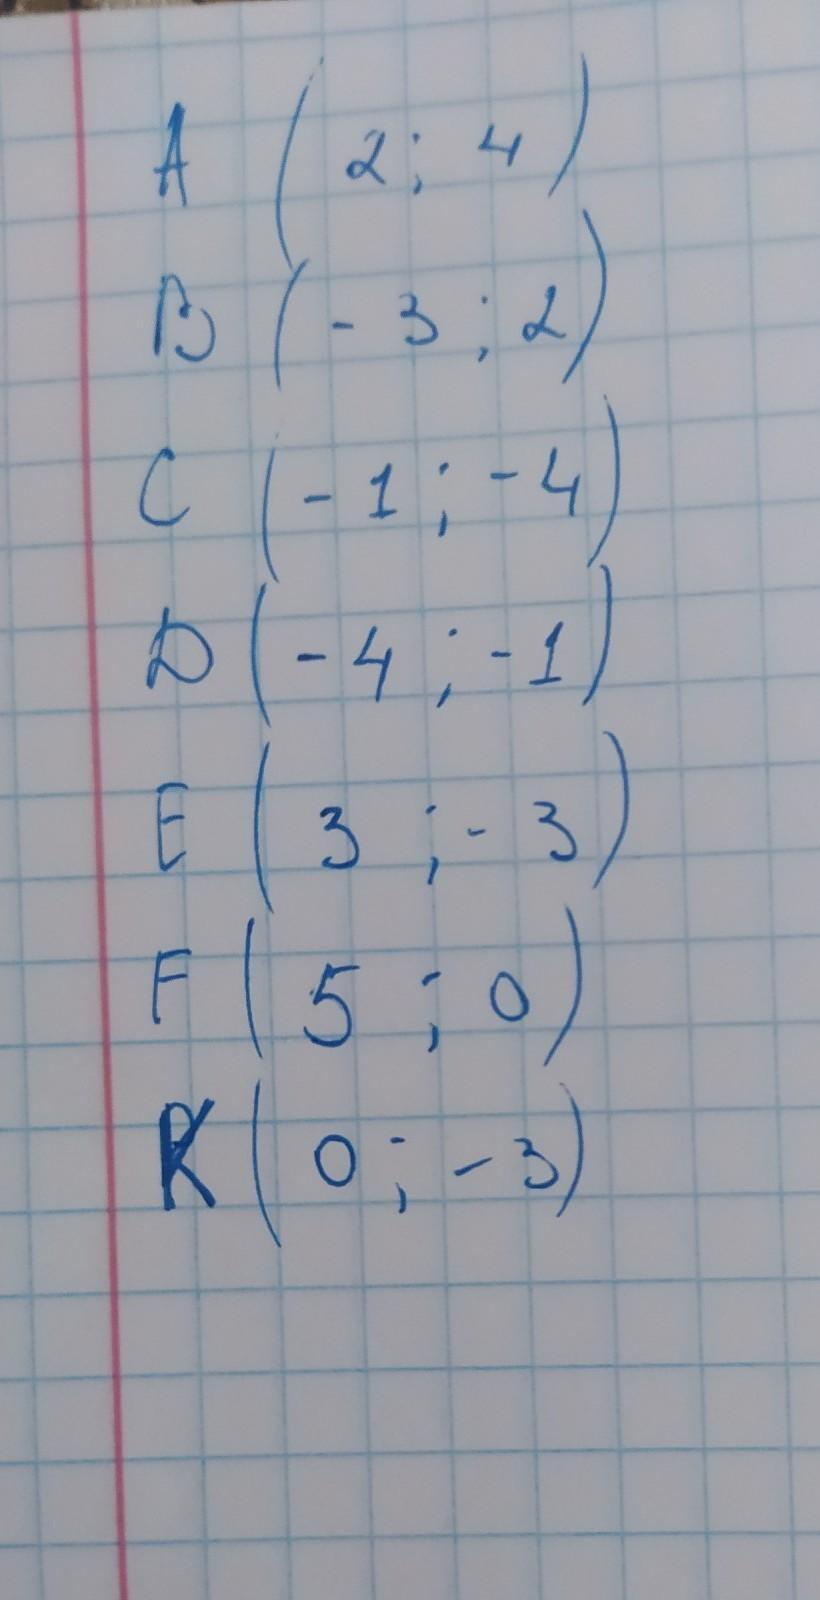 A (2; 4)
B (-3; 2)
C (-1; -4)
D (-4; -1)
E (3; -3)
F (5; 0)
K (0; -3)